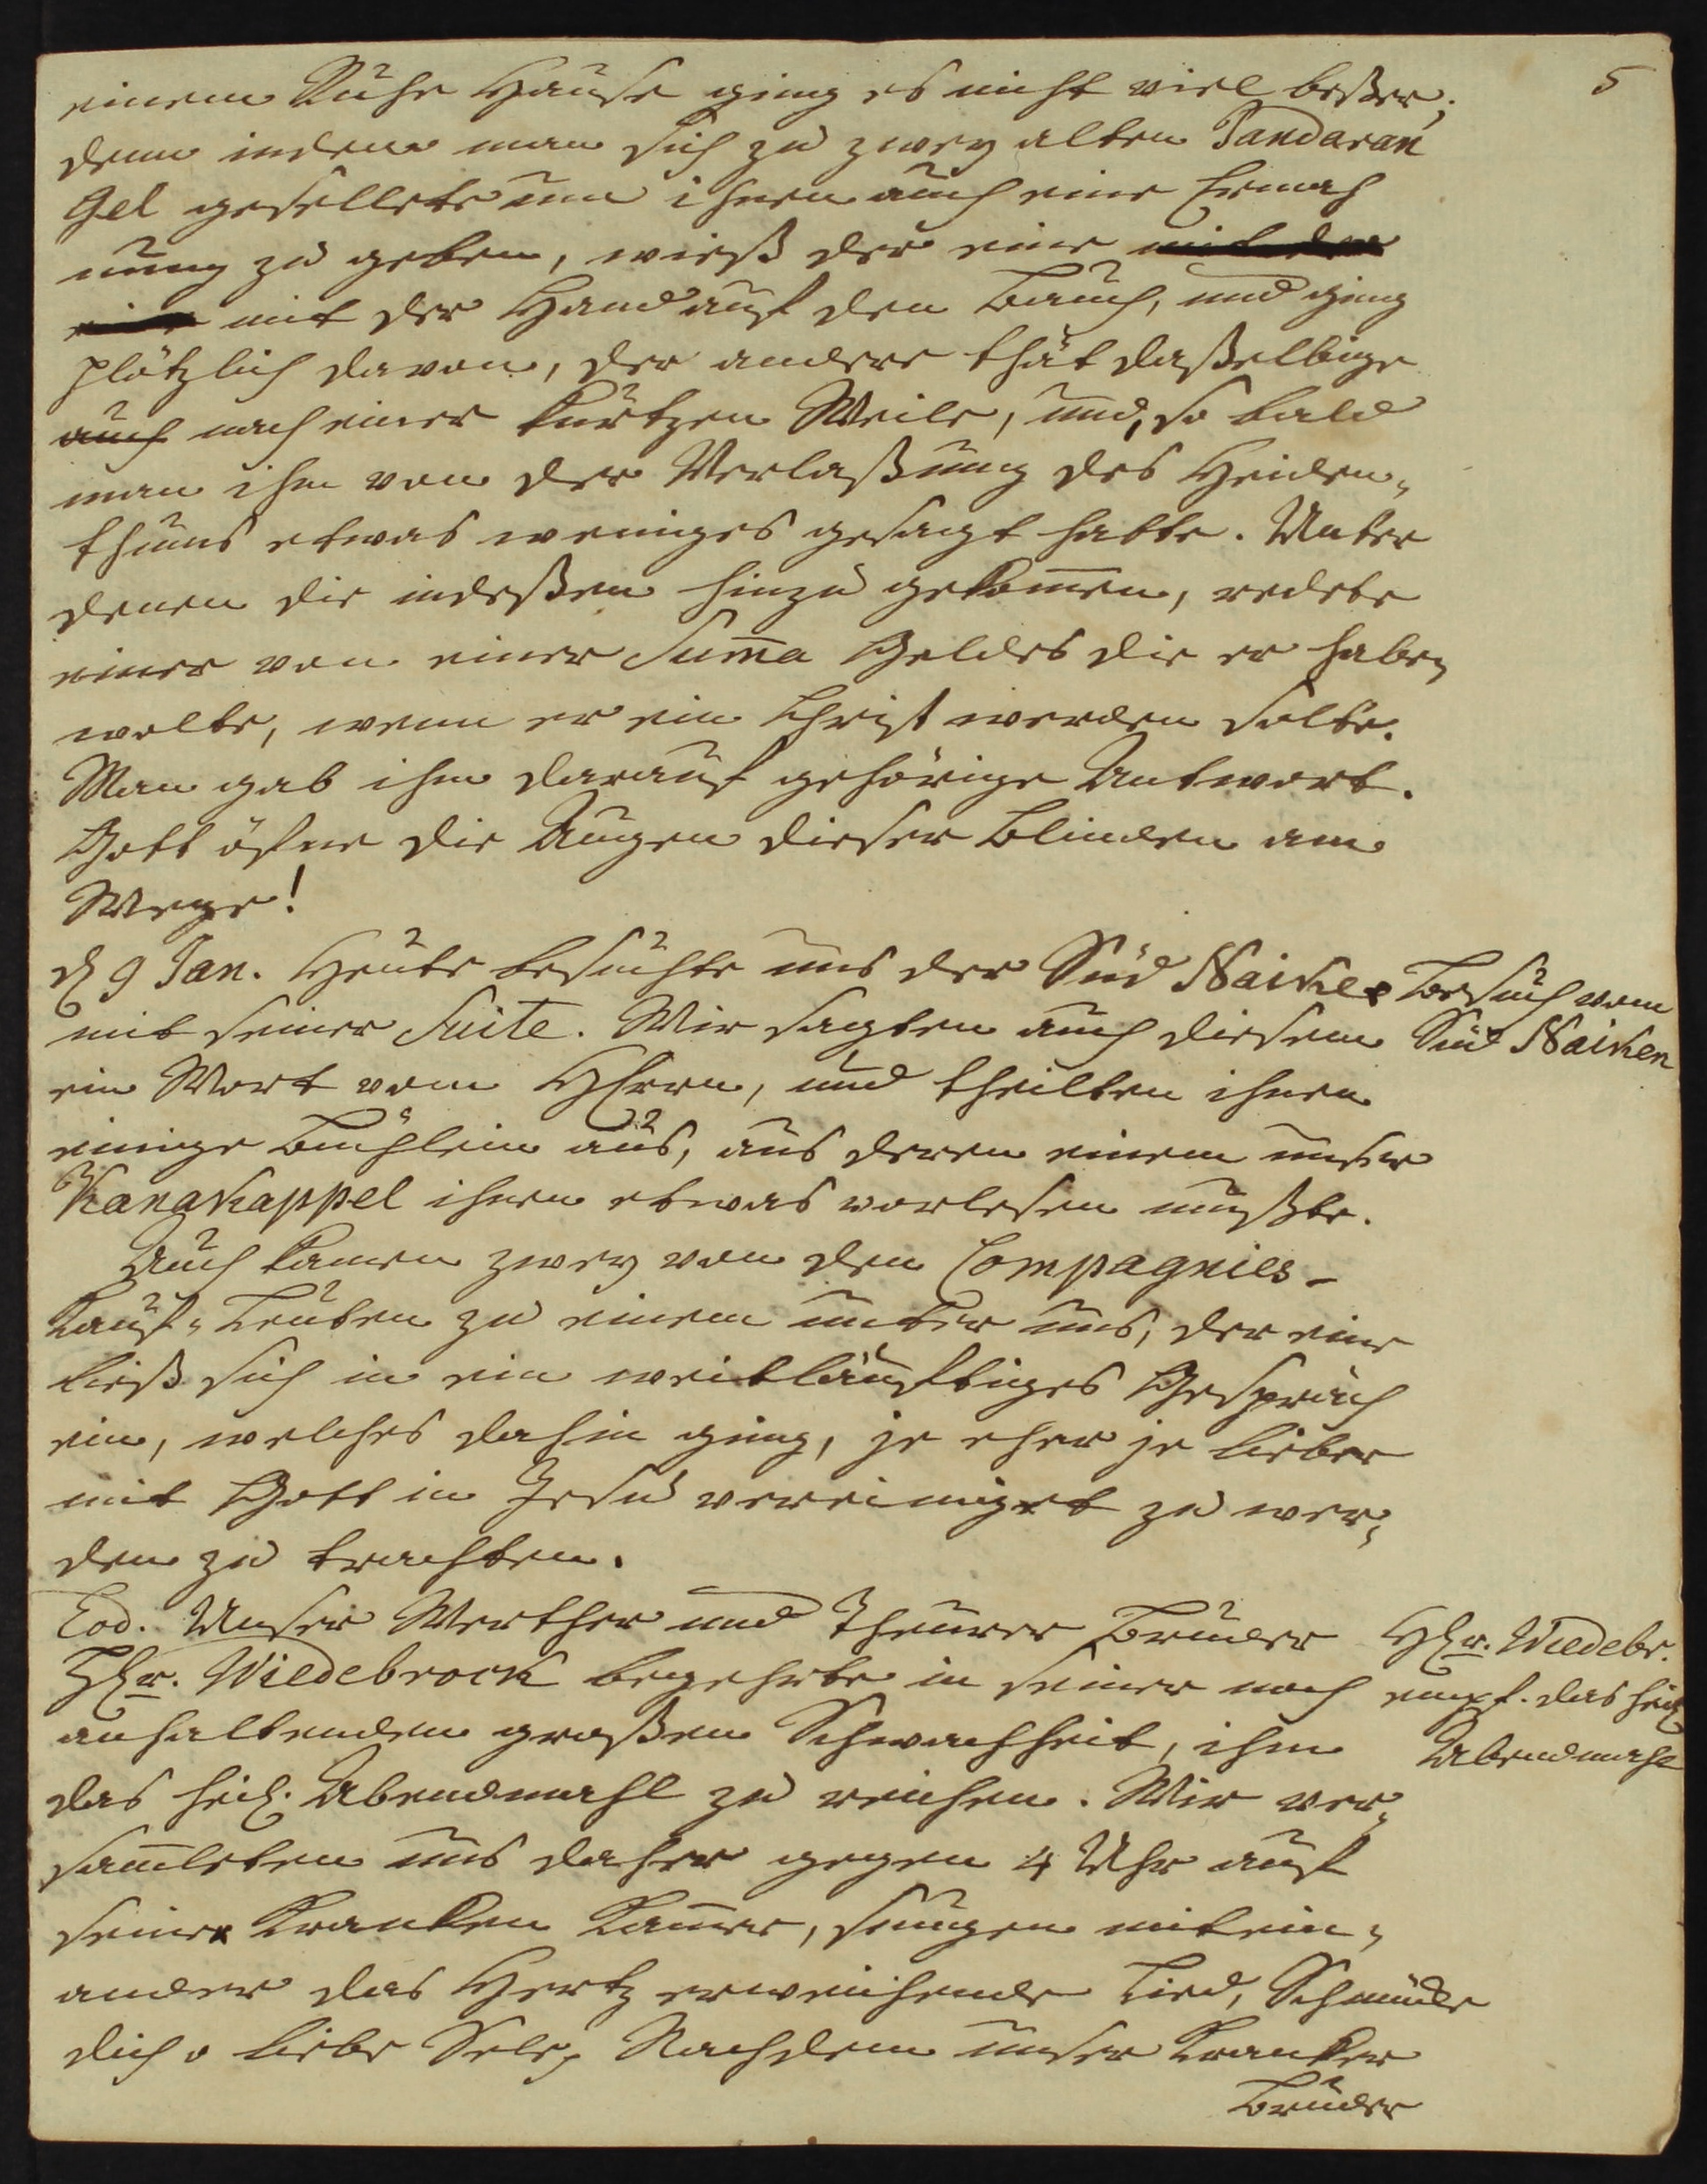 5
einem Ruhe Hause ging es nicht viel beßer;
denn indem man sich zu zwey alten Pandaran
gel gesellete um ihnen auch eine Ermah
nung zu geben, wieß der eine mit der
eine mit der Hand auf den Bauch, und ging
plötzlich davon, der andere thät daßelbige
auch nach einer kurtzen Weile, und, so bald
man ihm von der Verlaßung des Heiden-
thums etwas weniges gesagt hatte. Unter
denen die indeßen hinzu gekom̅en, redete
einer von einer Sum̅a Geldes die er haben
wolte, wenn er ein Christ werden solte.
Man gab ihm darauf gehörige Antwort.
Gott öfne die Augen dieser Blinden am
Wege!
d 9 Jan. Heute besuchte uns der Süd Naiker
mit seiner Suite. Wir sagten auch diesem
ein Wort vom HErrn, und theilten ihnen
einige Büchlein aus, aus deren einem unser
Kanakappel ihnen etwas vorlesen mußte.
Auch kamen zwey von den Compagnies-
Kauf-Leuten zu einem unter uns, der eine
ließ sich in ein weitläuftiges Gespräch
ein, welches dahin ging, je eher je lieber
mit Gott in Jesu vereiniget zu wer-
den zu trachten.
Eod. Unser Werther und Theurer Bruder
Hr. Wiedebrock begehrte in seiner noch
anhaltenden großen Schwachheit, ihm
das heil. Abendmahl zu reichen. Wir ver-
sam̅leten uns daher gegen 4 Uhr auf
seiner Kranken Kam̅er, sungen mitein-
ander das Hertz erweichende Lied, Schmücke
dich o liebe Sele, Nachdem unser Kranker
Bruder
Besuch vom
Süd Naiken
Hr. Wiedebr.
empf. das heil
Abendmahl